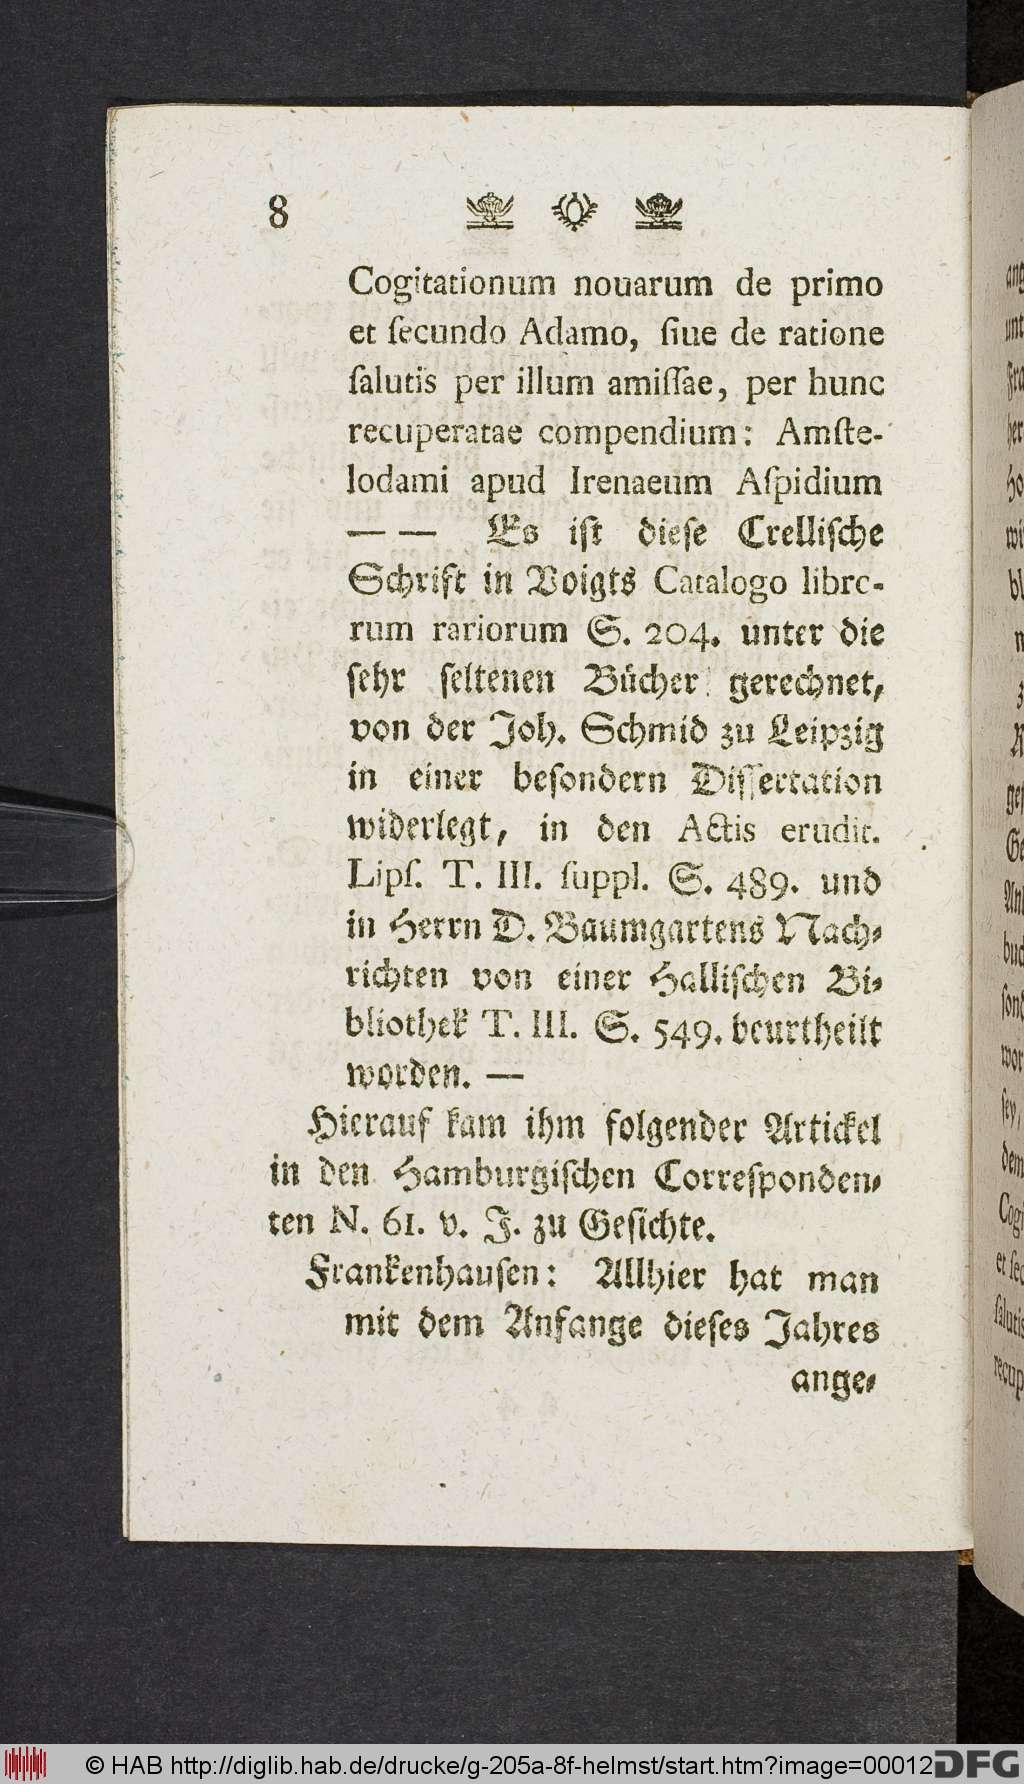 8
Cogitationum nouarum de primo
et ſecundo Adamo, ſiue de ratione
ſalutis per illum amiſſae, per hunc
recuperatae compendium: Amſte-
lodami apud Irenaeum Aſpidium
— — Es iſt dieſe Crelliſche
Schrift in Voigts Catalogo libro-
rum rariorum S. 204. unter die
ſehr ſeltenen Bücher gerechnet,
von der Joh. Schmid zu Leipzig
in einer beſondern Diſſertation
widerlegt, in den Actis erudit.
Lipſ. T. III. ſuppl. S. 489. und
in Herrn D. Baumgartens Nach-
richten von einer Halliſchen Bi-
bliothek T. III. S. 549. beurtheilt
worden. —
Hierauf kam ihm folgender Artickel
in den Hamburgiſchen Correſponden-
ten N. 61. v. J. zu Geſichte.
Frankenhauſen: Allhier hat man
mit dem Anfange dieſes Jahres
ange-
© HAB http://diglib.hab.de/drucke/g-205a-8f-helmst/start.htm?image=00012
DFG